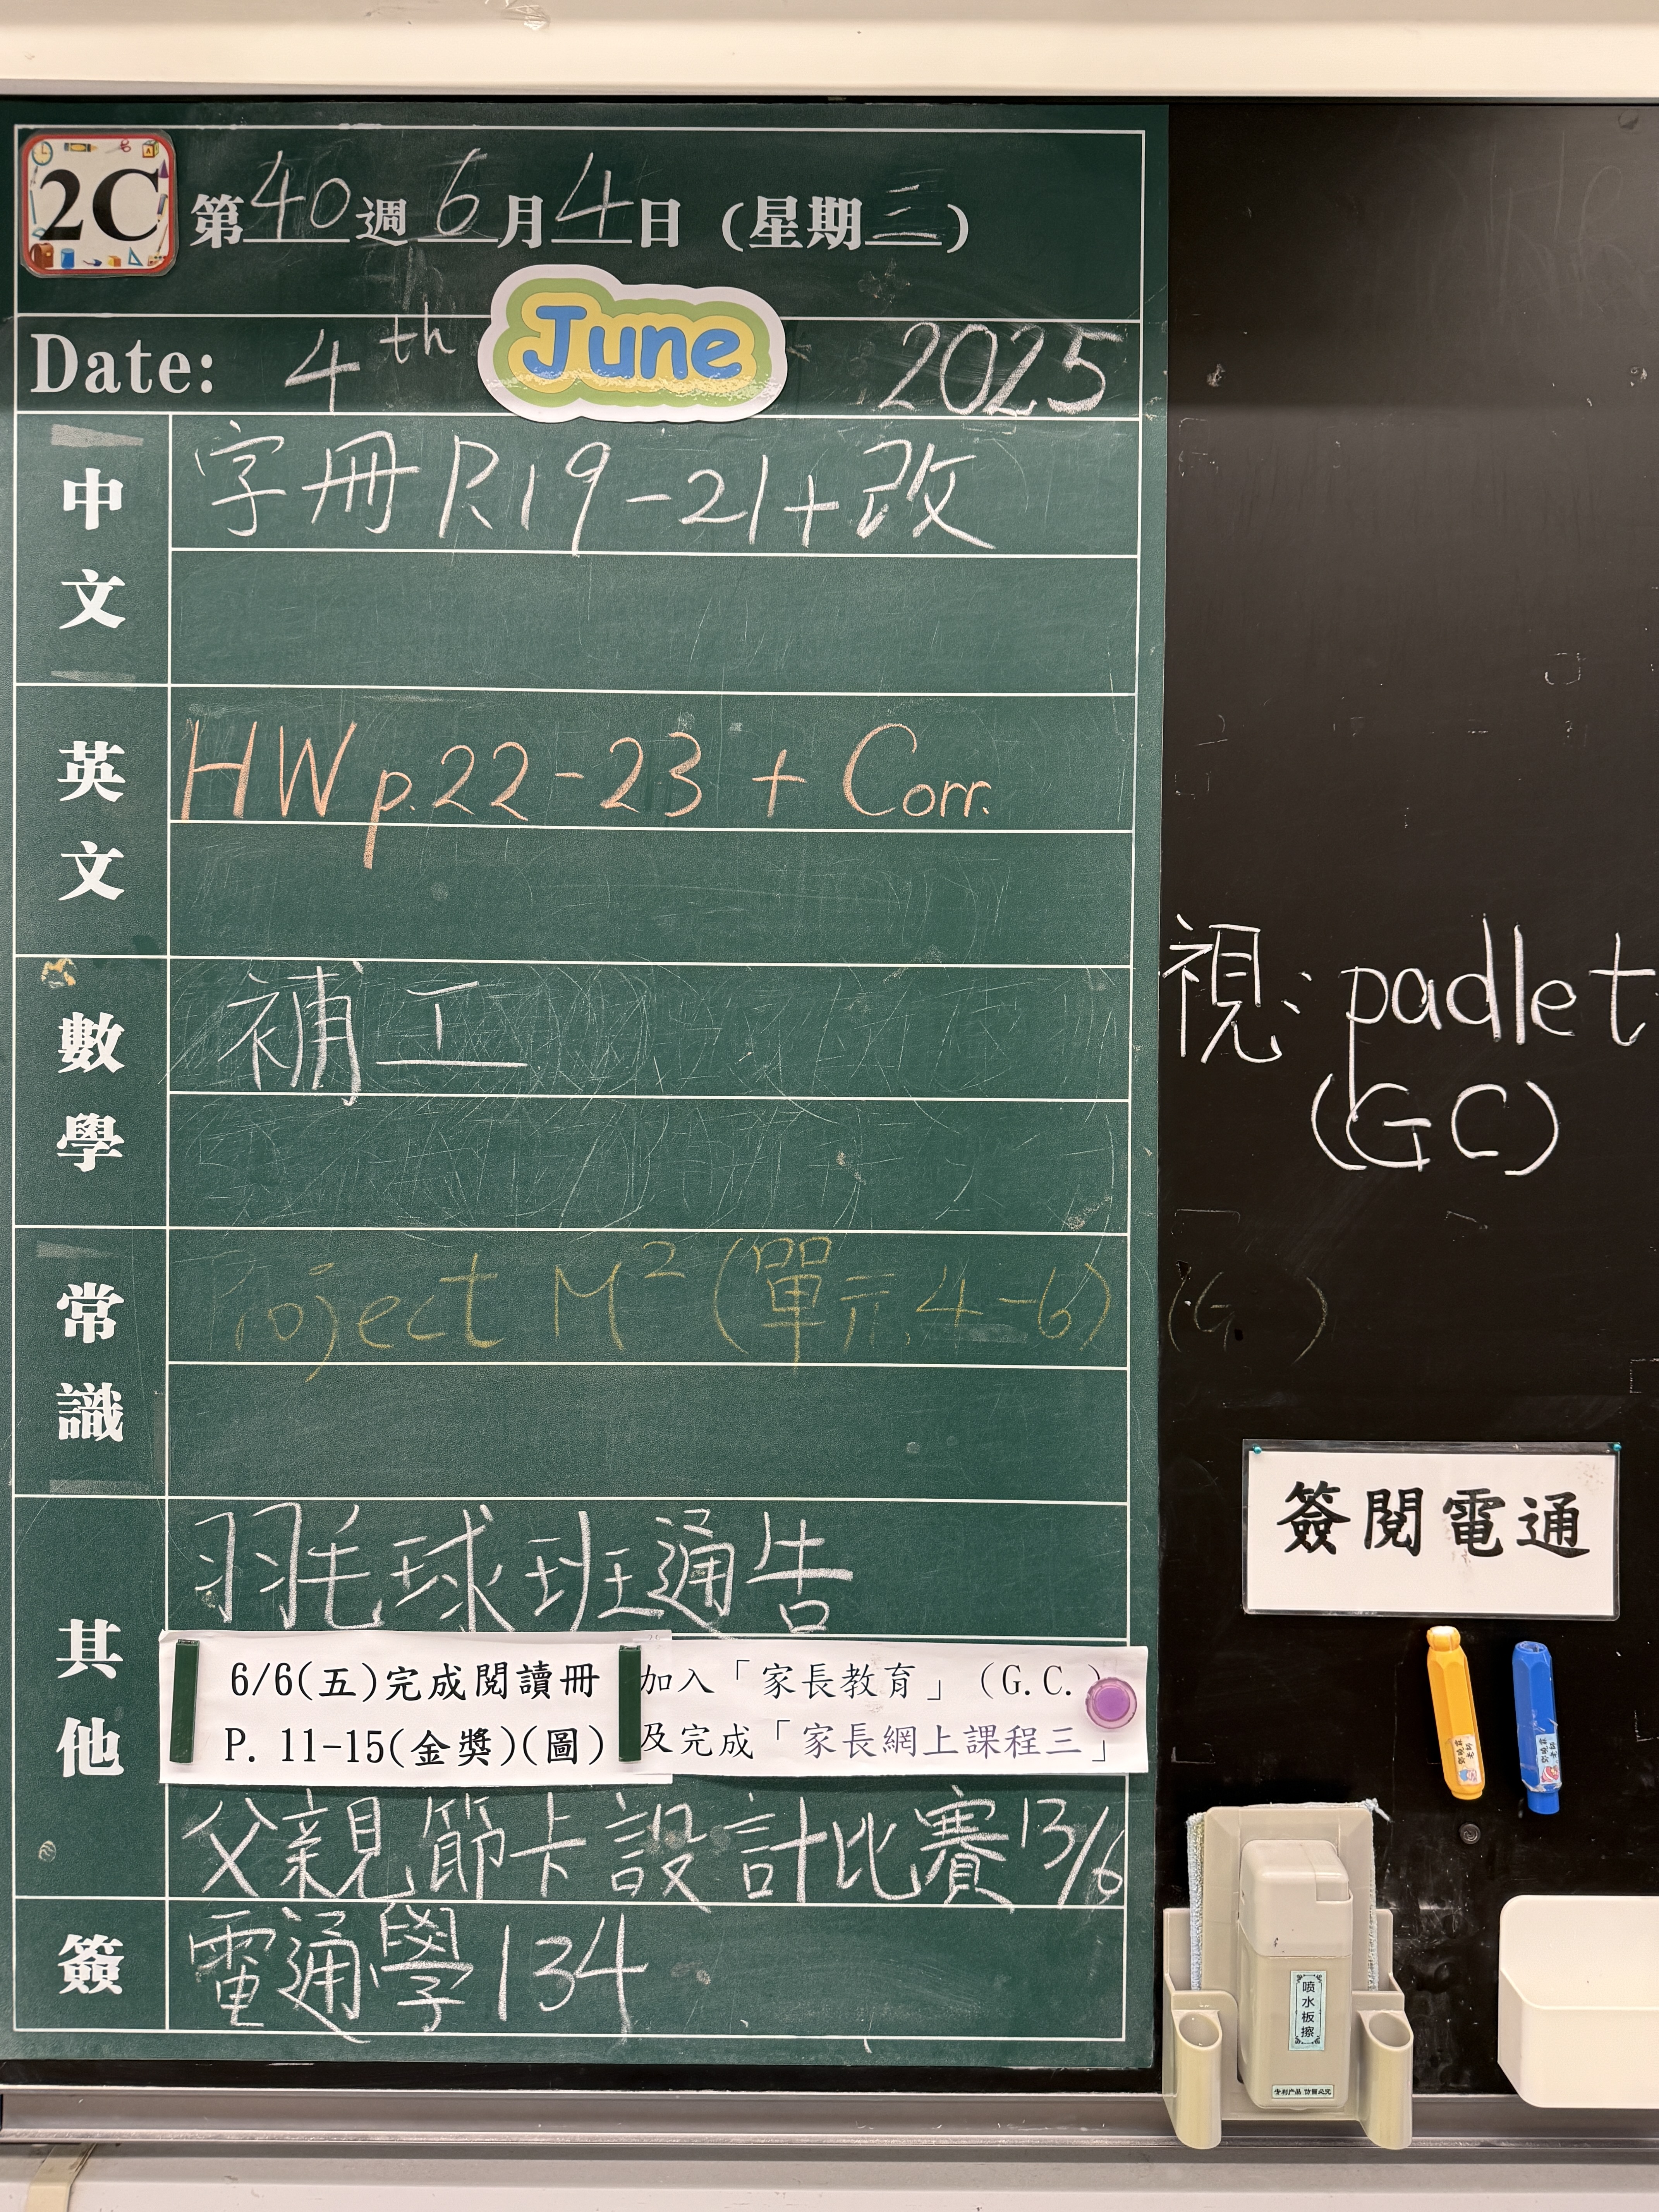 2C 第40週 6月4日 (星期三)
Date: 4th June 2025
中文 字冊 R19-21+改
英文 HW p.22-23 + Corr.
數學 補工
視: padlet
(GC)
常識 roject M² (單元 4-6) (G. )
其他 羽毛球班通告
簽閱電通
6/6(五)完成閱讀冊
P. 11-15(金獎)(圖)
加入「家長教育」(G.C.)
及完成「家長網上課程三」
父親節卡設計比賽 13/6
簽 電通學134
喷水板擦
专利产品 仿冒必究